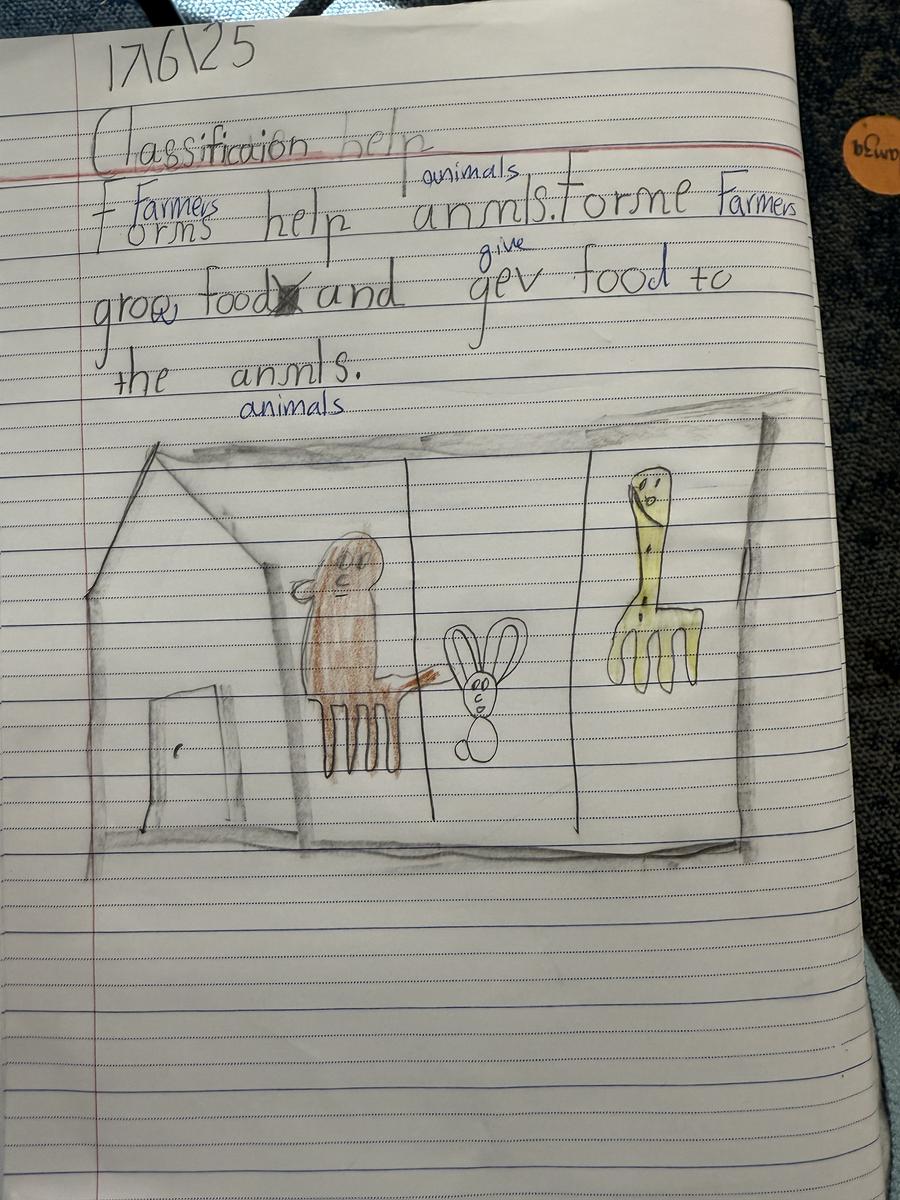 17\6\25
Classificaion help
animals
Farmers
Forms help anmls. Forme Farmers
give
grow food and gev food to
the anmls.
animals